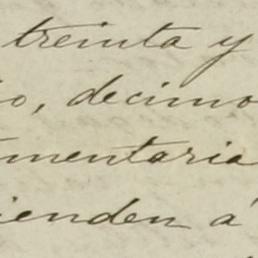 treinta y
o, decimo
mentaria
ienden á